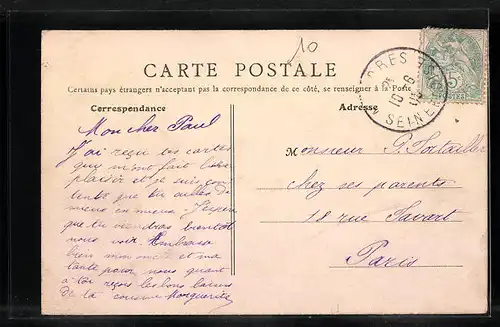 10
CARTE POSTALE
Certains pays étrangers n'acceptant pas la correspondance de ce côté, se renseigner à la Poste
Correspondance
Adresse
SEINE
5
Mon cher Paul
J'ai reçu tes cartes
qui m'ont fait
plaisir et je suis con
tente que tu ailles de
mieux en mieux. J'espère
que tu viendras bientôt
nous voir. Embrasse
bien mon oncle et ma
tante pour nous quant
à toi reçois les bons baisers
de ta cousine Marguerite
Monsieur P.
chez ses parents
18 rue Savart
Paris